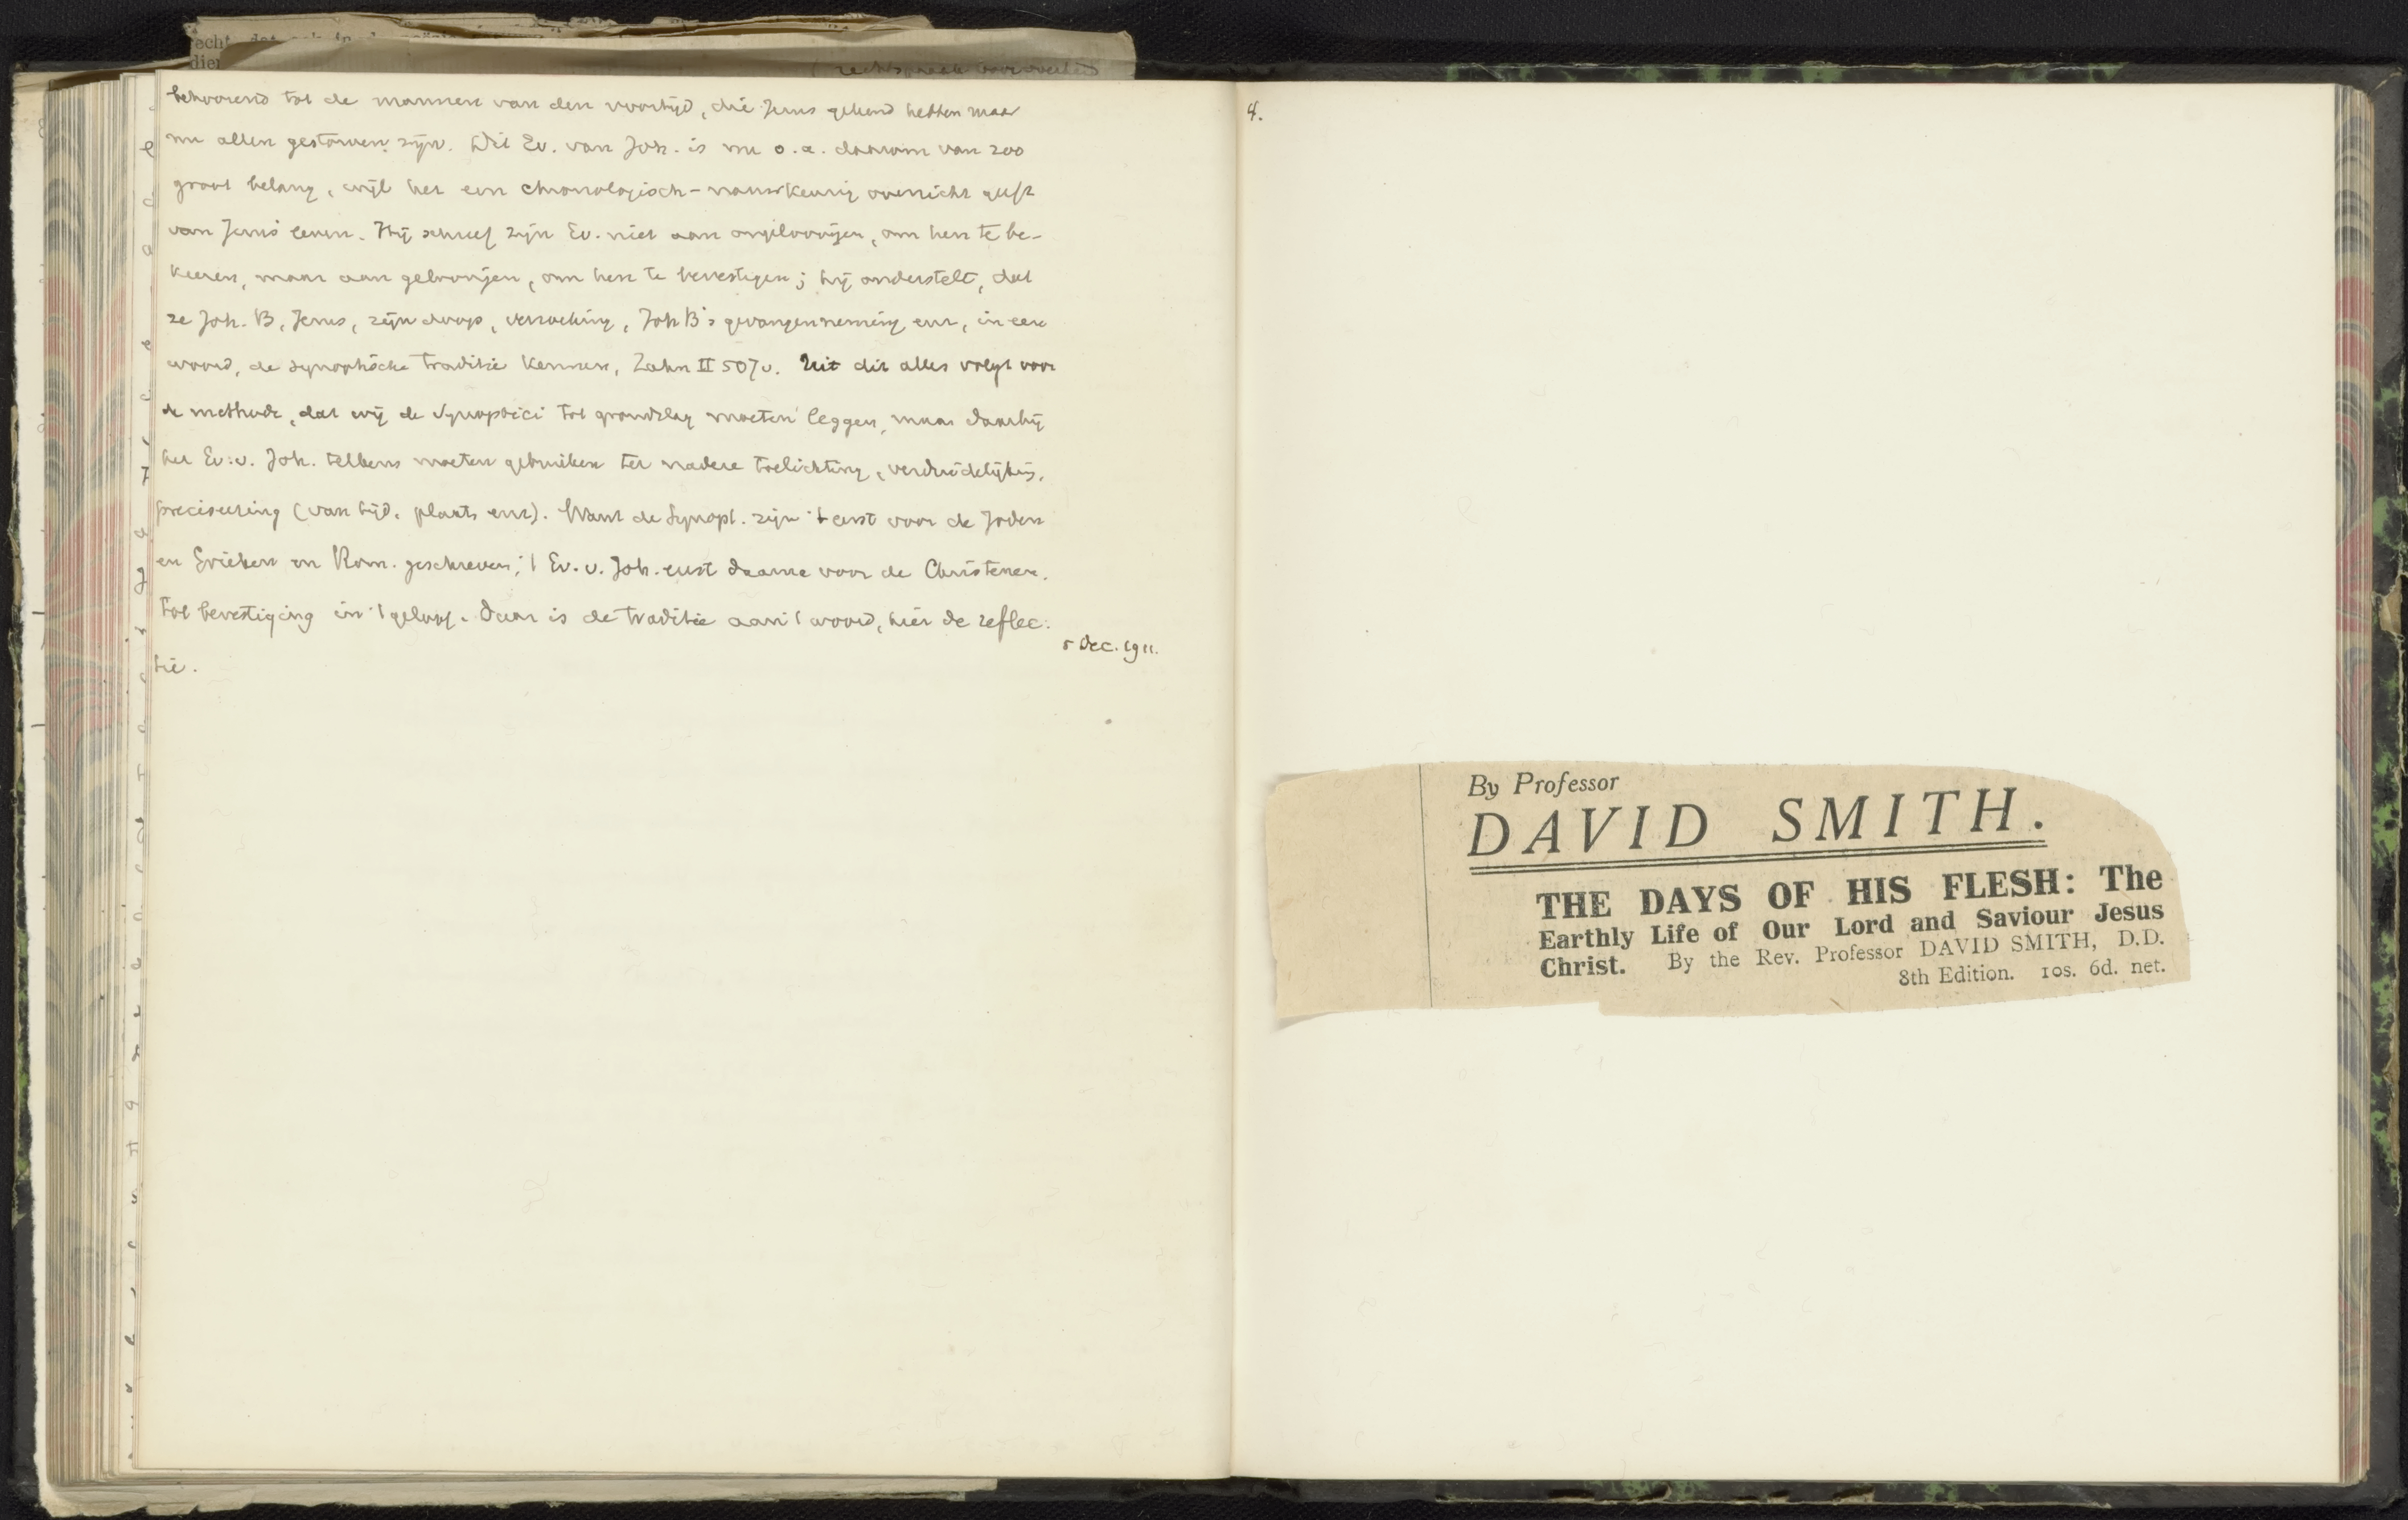 behoorend tot de mannen van den voortijd, die Jezus gekend hebben maar
nu allen gestorven zijn. Dit Ev. van Joh. is nu o.a. daarom van zoo
groot belang, wijl het een chronologisch-nauwkeurig overzicht geeft
van Jezus' leven. Hij schreef zijn Ev. niet aan ongeloovigen, om hen te be-
keeren, maar aan geloovigen, om hen te bevestigen; hij onderstelt, dat
ze Joh. B, Jezus, zijn doop, verzoeking, Joh B's gevangenneming enz, in een
woord, de synoptische traditie kennen, Zahn II 507v. Uit dit alles volgt voor
de methode, dat wij de Synoptici tot grondslag moeten leggen, maar daarbij
het Ev. v. Joh. telkens moeten gebruiken ter nadere toelichting, verduidelijking,
preciseering (van tijd, plaats enz). Want de Synopt. zijn 't eerst voor de Joden
en Grieken en Rom. geschreven; 't Ev. v. Joh. eerst daarna voor de Christenen,
tot bevestiging in 't geloof. Daar is de traditie aan 't woord, hier de reflec-
tie.
5 Dec. 1911.
4.
By Professor
DAVID SMITH.
THE DAYS OF HIS FLESH: The
Earthly Life of Our Lord and Saviour Jesus
Christ. By the Rev. Professor DAVID SMITH, D.D.
8th Edition. 10s. 6d. net.